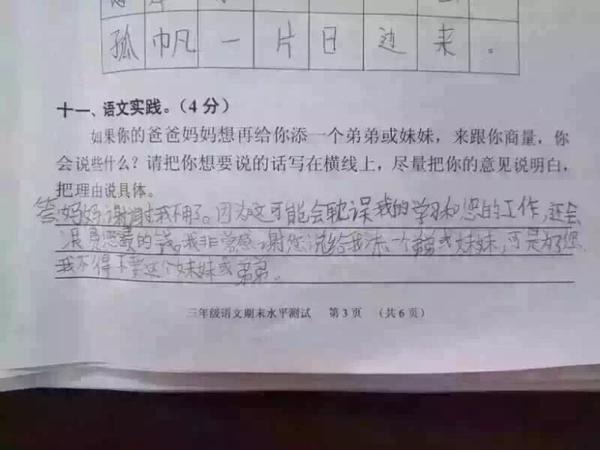 孤帆一片日边来。
十一、语文实践。（4分）
如果你的爸爸妈妈想再给你添一个弟弟或妹妹，来跟你商量，你
会说些什么？请把你想要说的话写在横线上，尽量把你的意见说明白，
把理由说具体。
答妈妈谢谢我不用了。因为这可能会耽误我的学习和您的工作，还会
浪费您的钱。我非常感谢您说给我添一个弟弟或妹妹，可是为了您
我不得不要这个妹妹或弟弟。
三年级语文期末水平测试 第3页 （共6页）